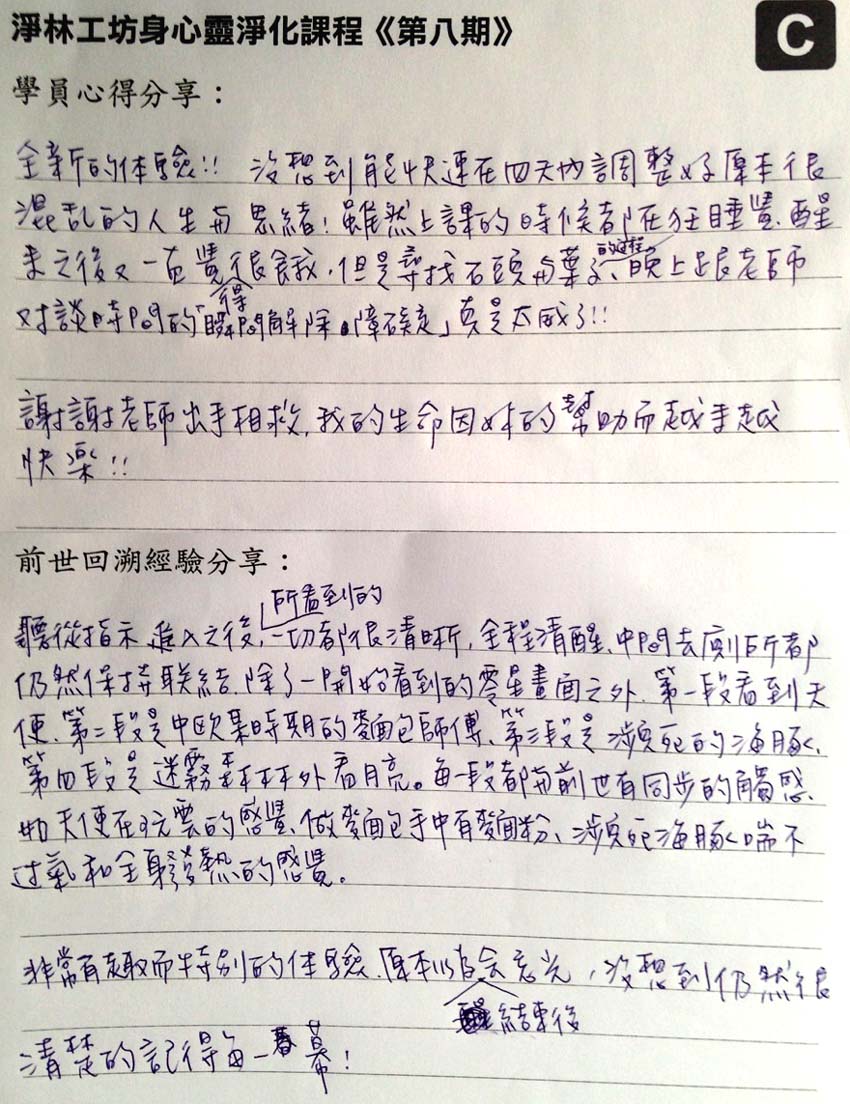 淨林工坊身心靈淨化課程《第八期》
C
學員心得分享：
全新的体驗!! 沒想到能快速在四天內調整好原本很
混乱的人生與思緒！雖然上課的時候都在狂睡覺、醒
来之後又一直覺很餓，但是尋找石頭與葉子的過程、晚上跟老師
對談時間的「瞬間得解除障礙」真是太威了!!
謝謝老師出手相救，我的生命因妳的幫助而越来越
快楽!!
前世回溯經驗分享：
所看到的
聽從指示進入之後，一切都很清晰，全程清醒、中間去廁所都
仍然保持联結、除了一開始看到的零星畫面之外、第一段看到天
使、第二段是中欧某時期的麵包師傅、第三段是瀕死的海豚、
第四段是迷霧森林外看月亮。每一段都與前世有同步的觸感、
如天使在玩雲的感覺、做麵包手中有麵粉、瀕死海豚喘不
过氣和全身發熱的感覺。
非常有趣而特別的体驗、原本以為会忘光，沒想到仍然很
結束後
清楚的記得每一幕！